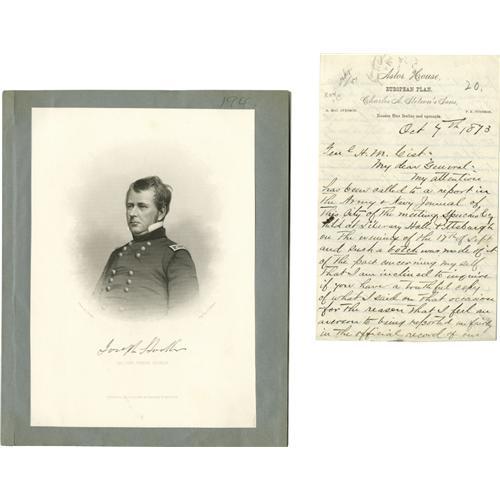 Joseph Hooker
Astor House,
EUROPEAN PLAN.
20.
Charles A. Stetson's Sons,
Rooms One Dollar and upwards.
Oct 7th 1873
Gen H. M. Cist
My dear General
My attention
has been called to a report in
the Army & Navy Journal of
this City of the meeting Speeches &c
held at Literary Hall Pittsburgh
on the evening of the 17th of Sept
and such a botch was made of it
of the part concerning my self
that I am inclined to inquire
if you have a truthful copy
of what I said on that occasion
for the reason that I feel an
aversion to being reported
in the official record of our